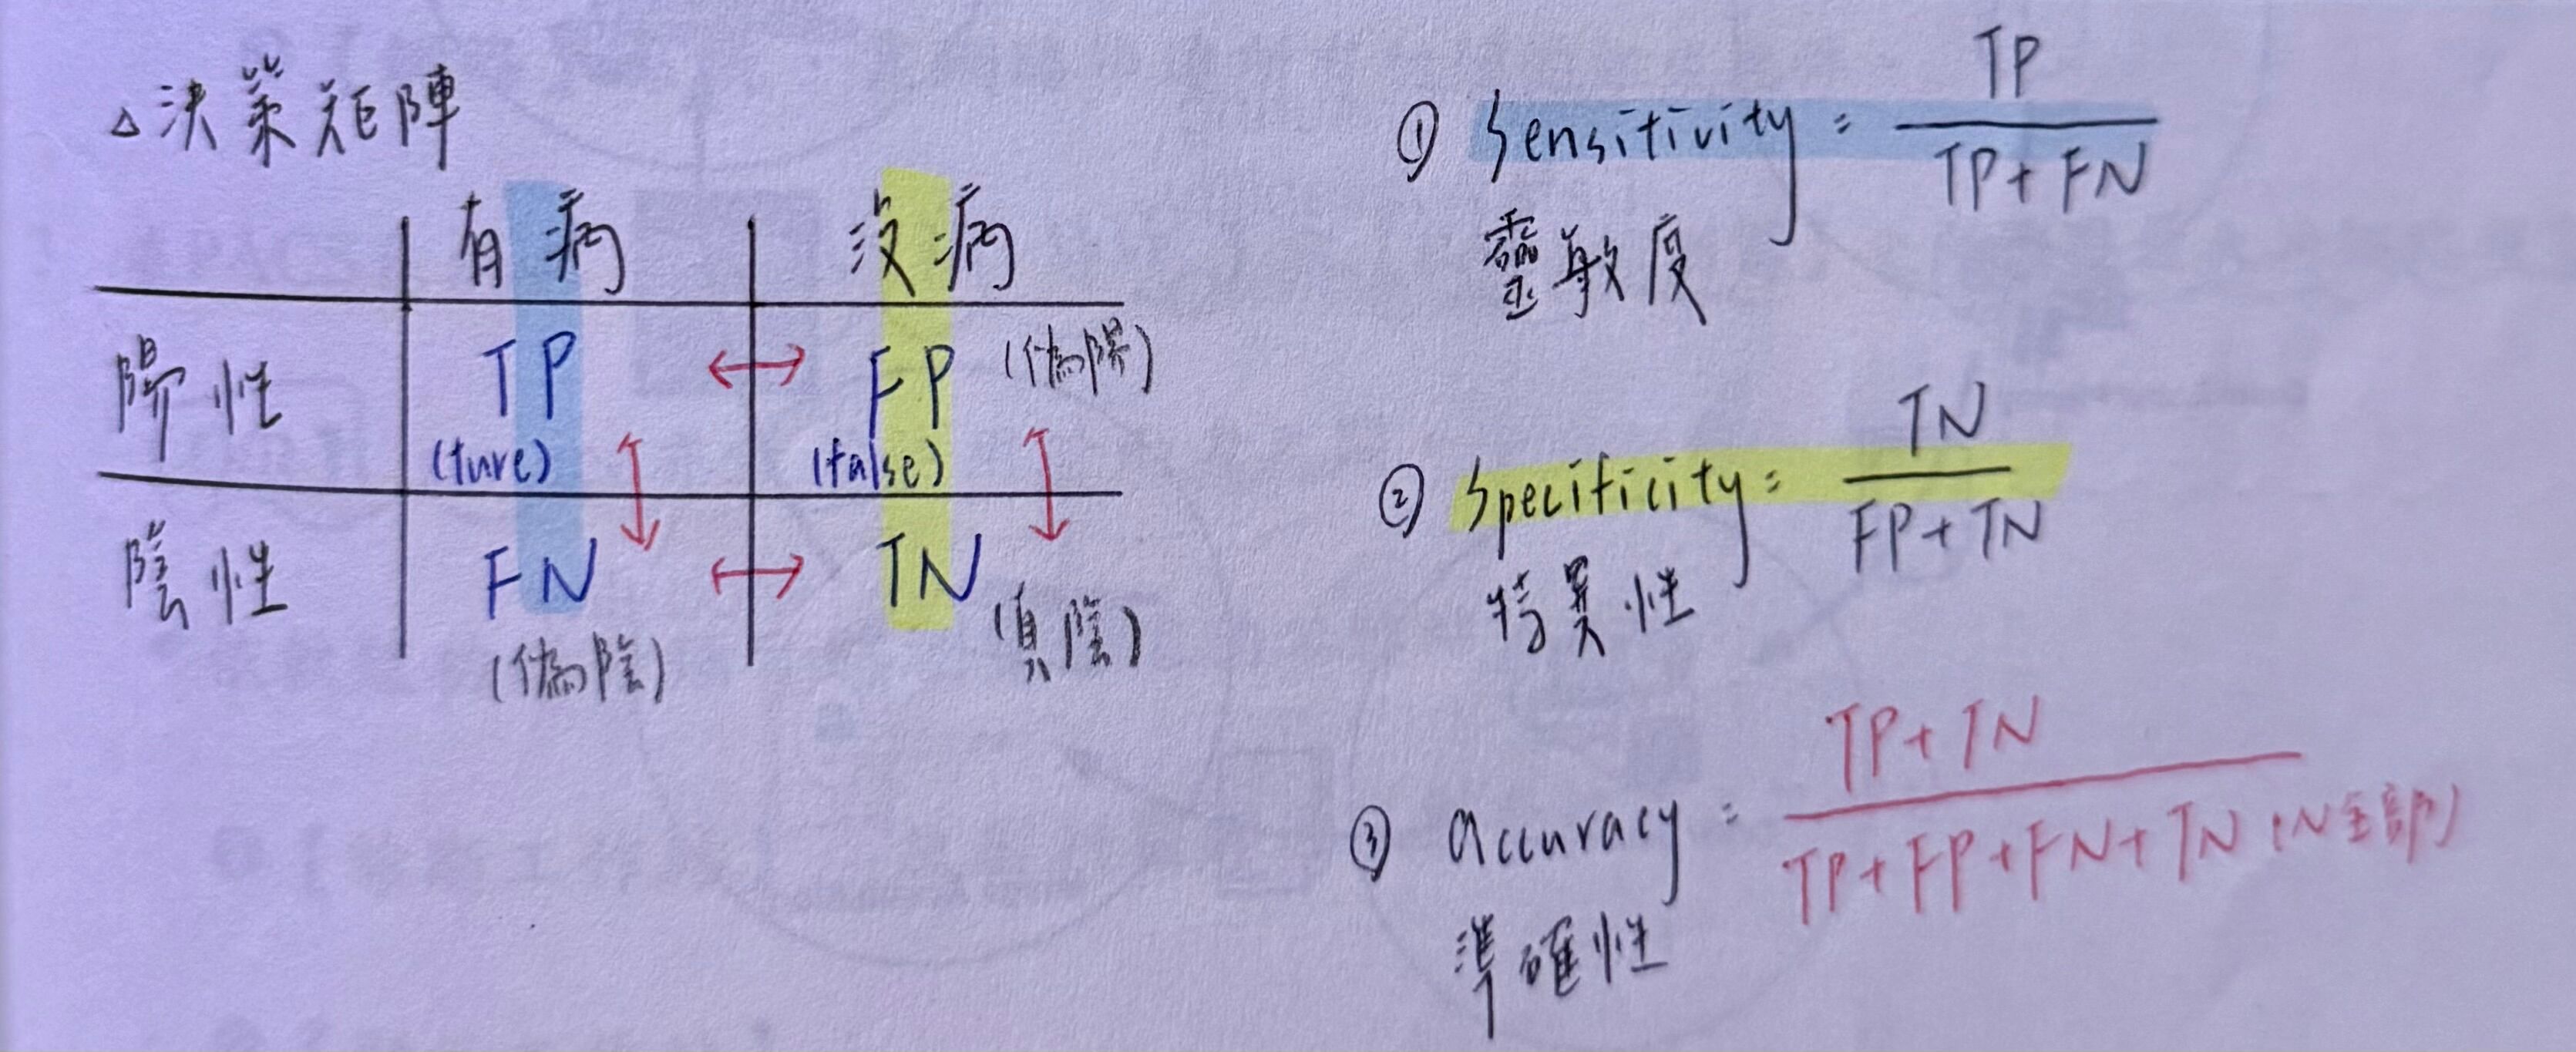 △決策矩陣
有病 沒病
陽性 TP ↔ FP (偽陽)
(ture) (false)
陰性 FN ↔ TN
(偽陰) (真陰)
① Sensitivity = TP / TP + FN
靈敏度
② Specificity = TN / FP + TN
特異性
③ Accuracy = TP + TN / TP + FP + FN + TN (N全部)
準確性